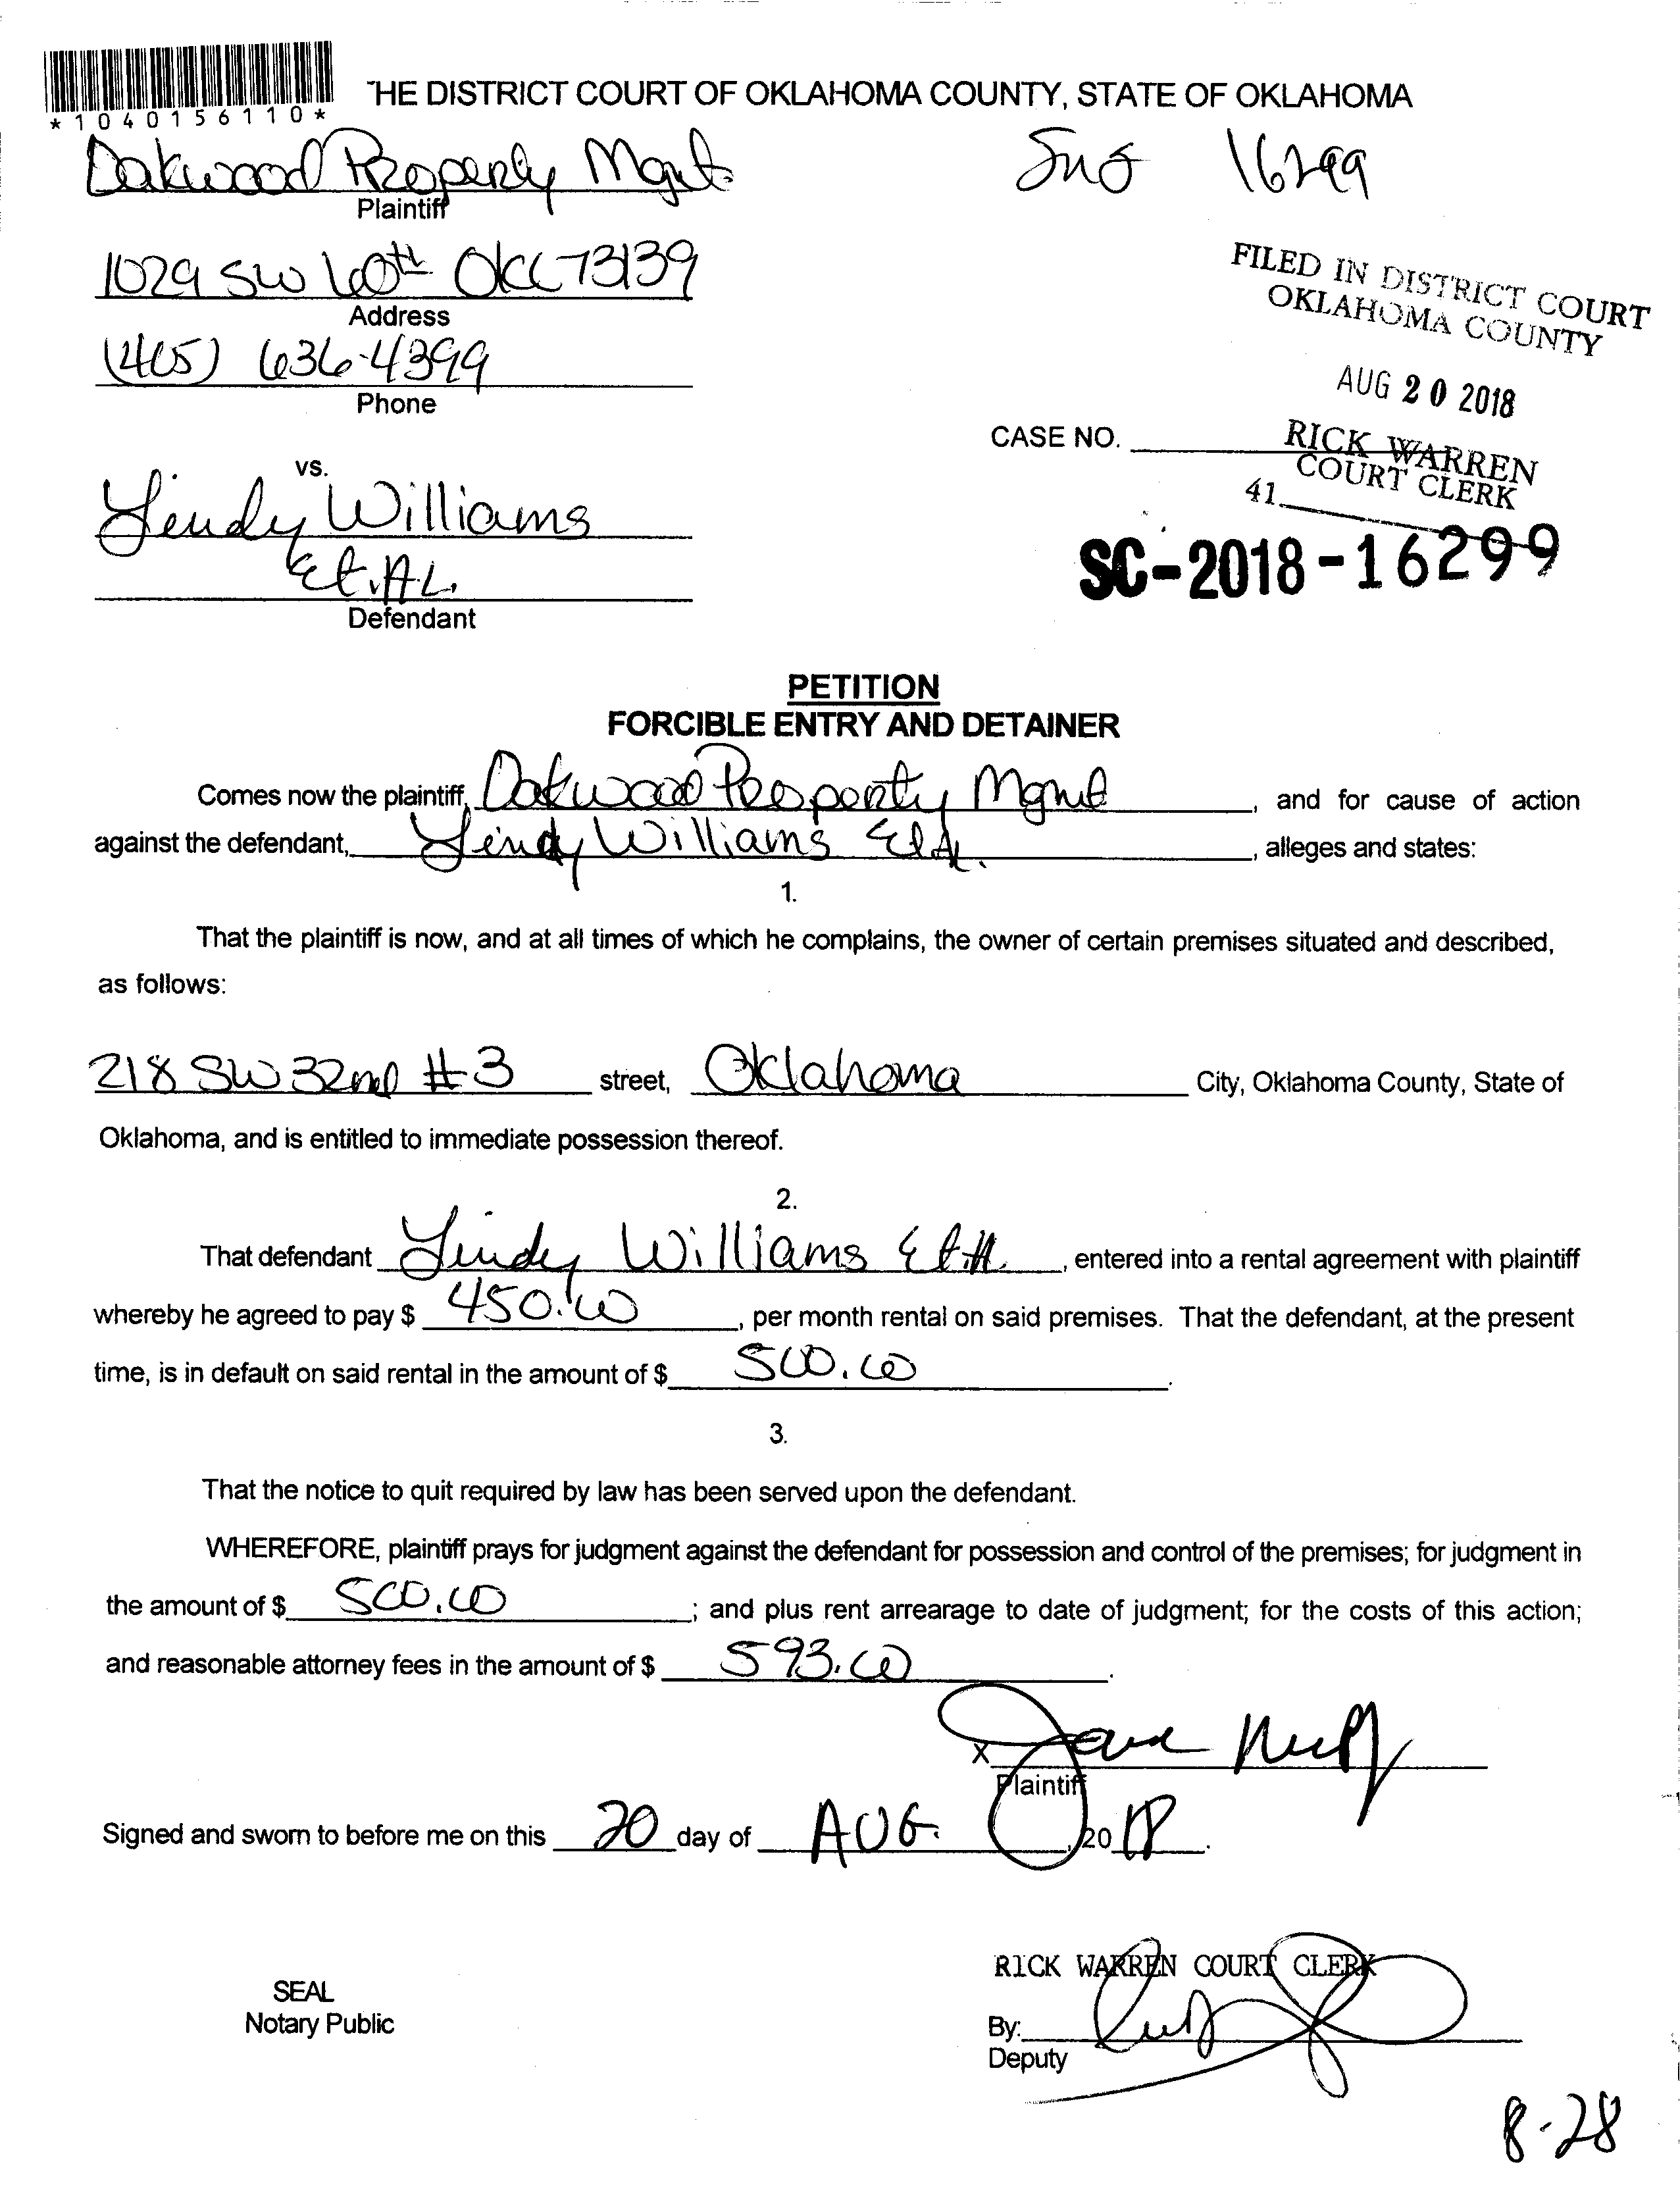 *1040156110*
THE DISTRICT COURT OF OKLAHOMA COUNTY, STATE OF OKLAHOMA
Oakwood Property Mgmt
16299
Plaintiff
1029 SW 60th OKC 73139
Address
FILED IN DISTRICT COURT
OKLAHOMA COUNTY
(405) 636-4399
Phone
AUG 20 2018
CASE NO.
RICK WARREN
COURT CLERK
41
vs.
Lindy Williams
Et.AL.
Defendant
SC-2018-16299
PETITION
FORCIBLE ENTRY AND DETAINER
Comes now the plaintiff, Oakwood Property Mgmt, and for cause of action
against the defendant, Lindy Williams Et AL., alleges and states:
1.
That the plaintiff is now, and at all times of which he complains, the owner of certain premises situated and described,
as follows:
218 SW 32nd #3 street, Oklahoma City, Oklahoma County, State of
Oklahoma, and is entitled to immediate possession thereof.
2.
That defendant Lindy Williams Et.Al., entered into a rental agreement with plaintiff
whereby he agreed to pay $ 450.00, per month rental on said premises. That the defendant, at the present
time, is in default on said rental in the amount of $ 500.00.
3.
That the notice to quit required by law has been served upon the defendant.
WHEREFORE, plaintiff prays for judgment against the defendant for possession and control of the premises; for judgment in
the amount of $ 500.00; and plus rent arrearage to date of judgment; for the costs of this action;
and reasonable attorney fees in the amount of $ 593.00.
X
Plaintiff
Signed and sworn to before me on this 20 day of AUG., 2018.
RICK WARREN COURT CLERK
SEAL
Notary Public
By:
Deputy
8-28